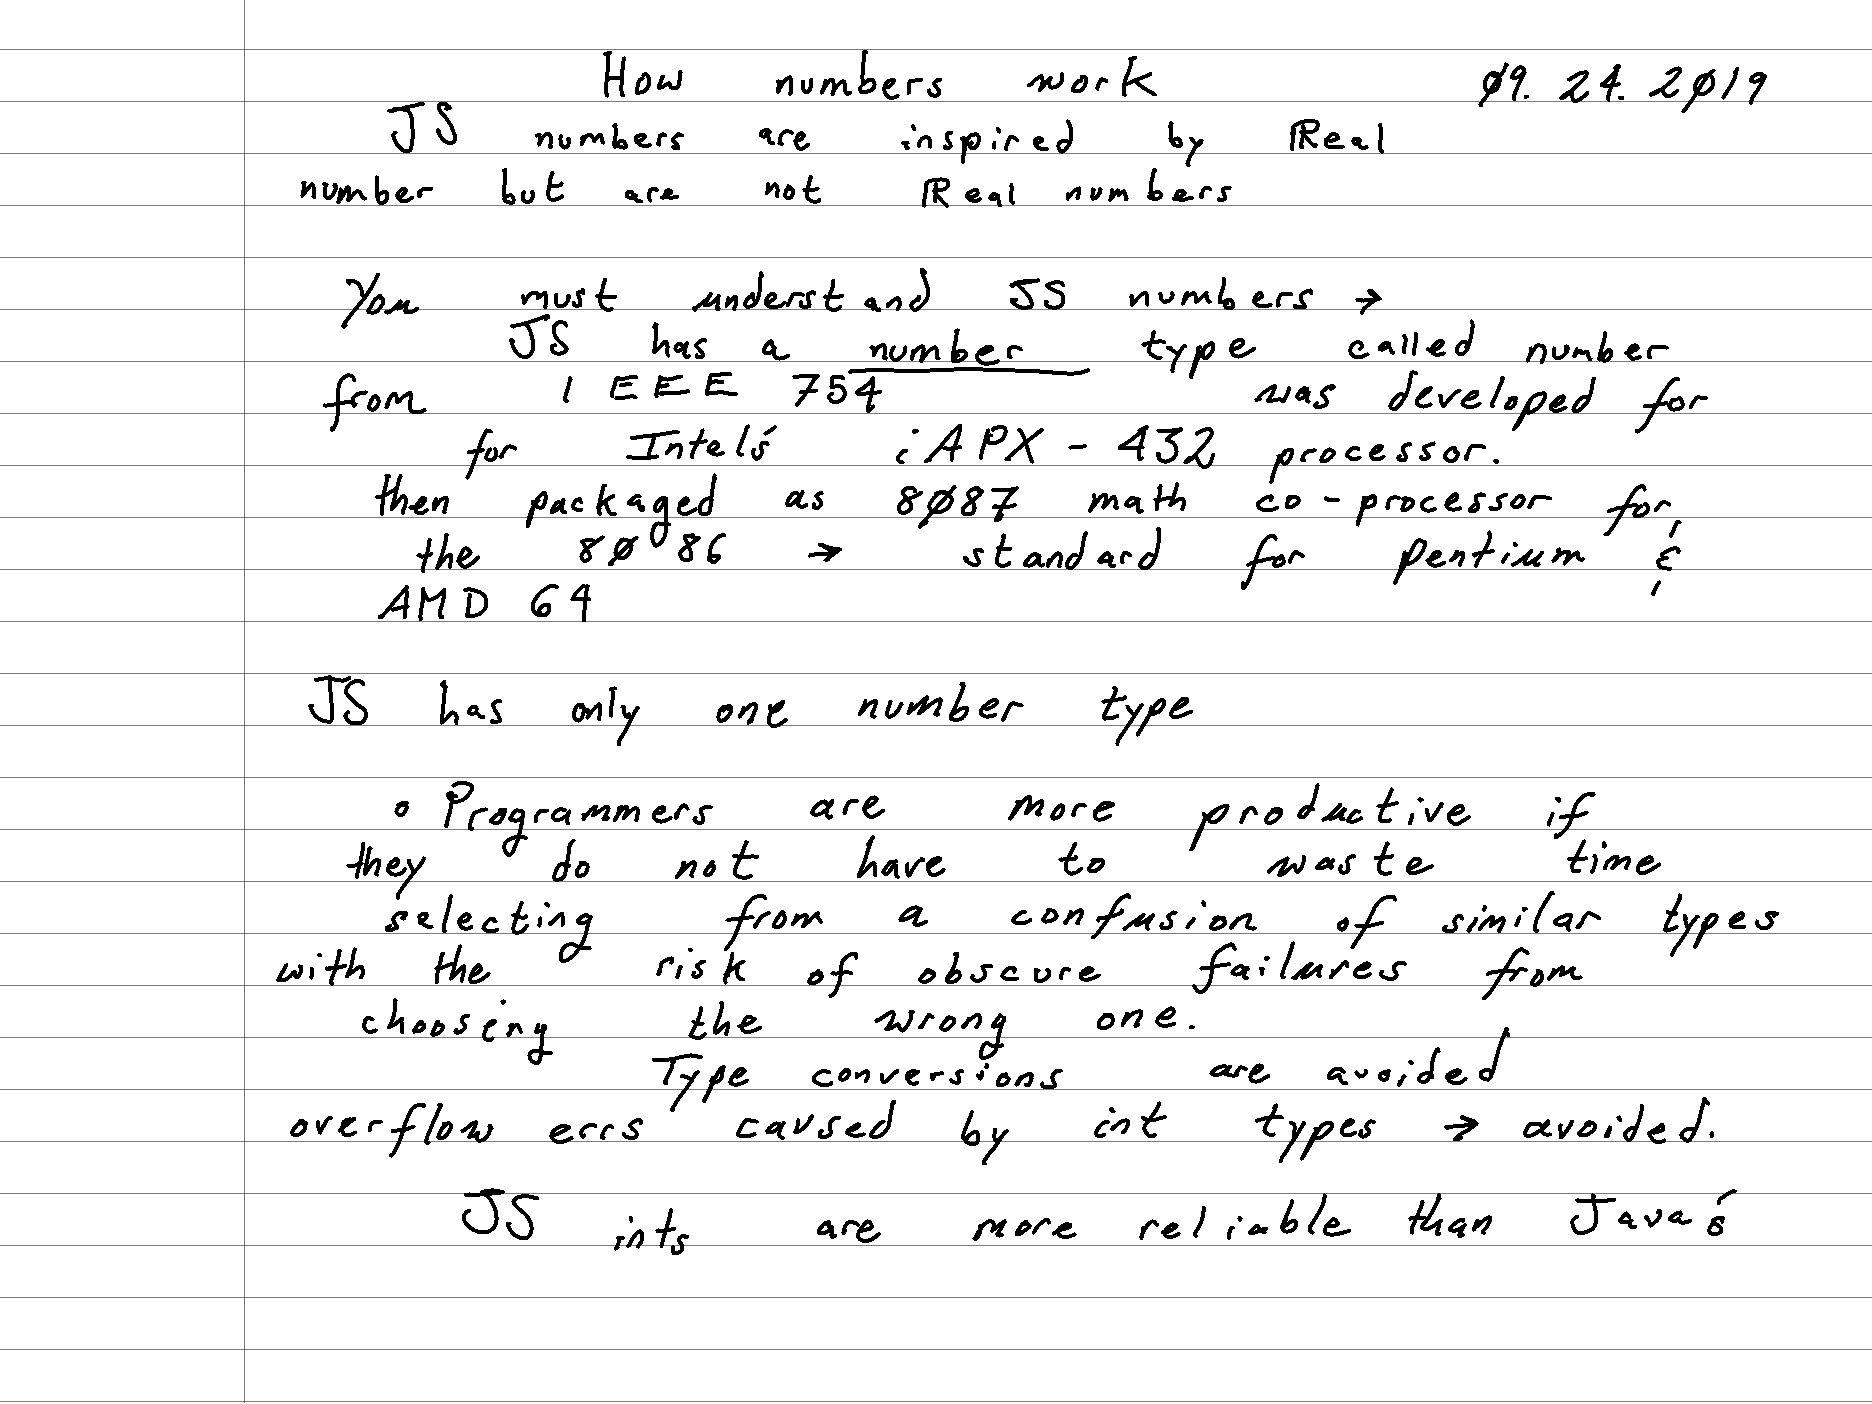 How numbers work 09. 24. 2019
JS numbers are inspired by Real
number but are not Real numbers
You must understand JS numbers →
JS has a number type called number
from IEEE 754 was developed for
for Intel's iAPX - 432 processor.
then packaged as 8087 math co-processor for
the 8086 → standard for pentium &
AMD 64
JS has only one number type
o Programmers are more productive if
they do not have to waste time
selecting from a confusion of similar types
with the risk of obscure failures from
choosing the wrong one.
Type conversions are avoided
overflow errs caused by int types → avoided.
JS ints are more reliable than Java's